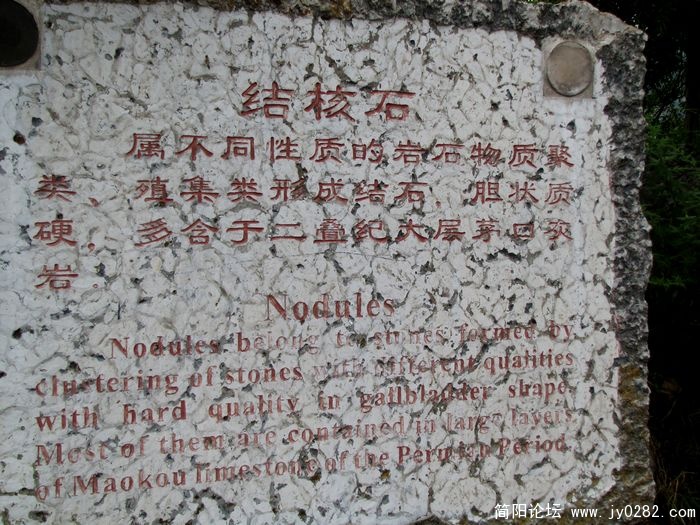 结核石
属不同性质的岩石物质聚
类、殖集类形成结石，胆状质
硬，多含于二叠纪大层茅口灰
岩.
Nodules
Nodules belong to stones formed by
clustering of stones with different qualities
with hard quality in gallbladder shape.
Most of them are contained in large layers
of Maokou limestone of the Permian Period.
简阳论坛 www.jy0282.com